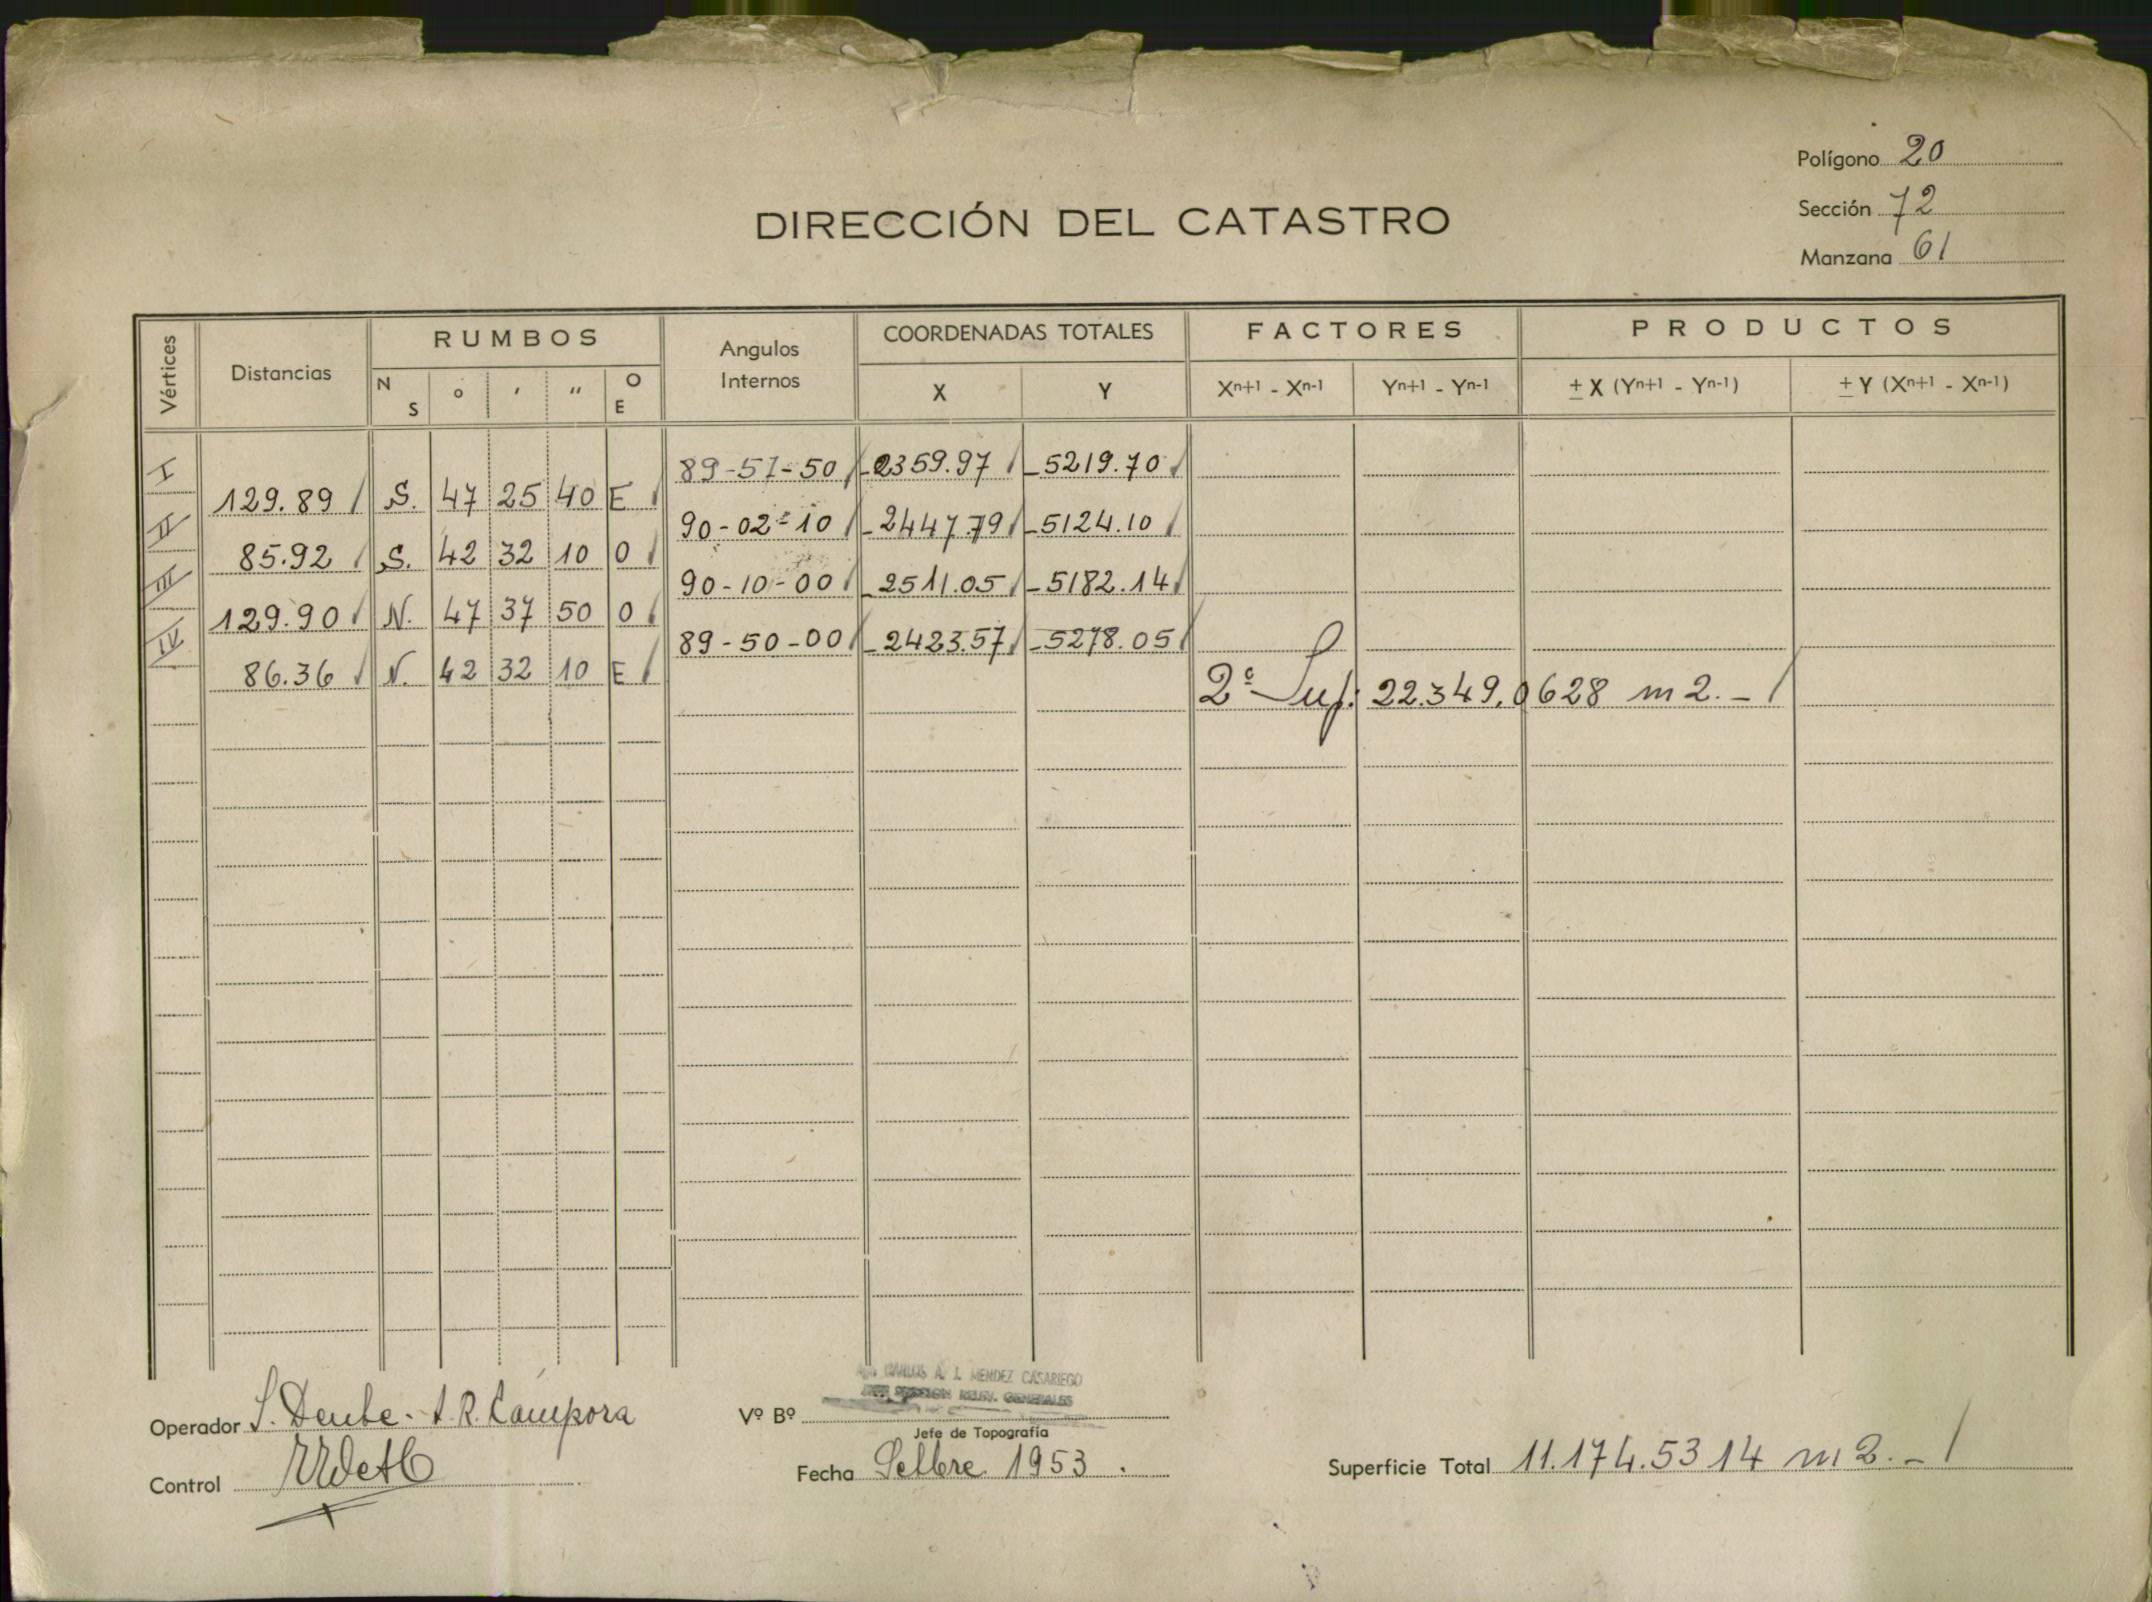 Polígono 20
Sección 72
Manzana 61
DIRECCIÓN DEL CATASTRO
Vértices Distancias RUMBOS Angulos Internos COORDENADAS TOTALES FACTORES PRODUCTOS
N S ° ' " O E X Y Xn+1 - Xn-1 Yn+1 - Yn-1 ± X (Yn+1 - Yn-1) ± Y (Xn+1 - Xn-1)
I 89-57-50 -2359.97 -5219.70
129.89 S. 47 25 40 E
II 90-02-10 -2447.79 -5124.10
85.92 S. 42 32 10 O
III 90-10-00 -2511.05 -5182.14
129.90 N. 47 37 50 O
IV 89-50-00 -2423.57 -5278.05
86.36 N. 42 32 10 E
2c Sup: 22.349,0628 m2.-
CARLOS A. J. MENDEZ CASARIEGO
Operador A.R. Campora
Vº Bº
Jefe de Topografía
Control
Fecha Setbre 1953.
Superficie Total 11.174.5314 m2.-